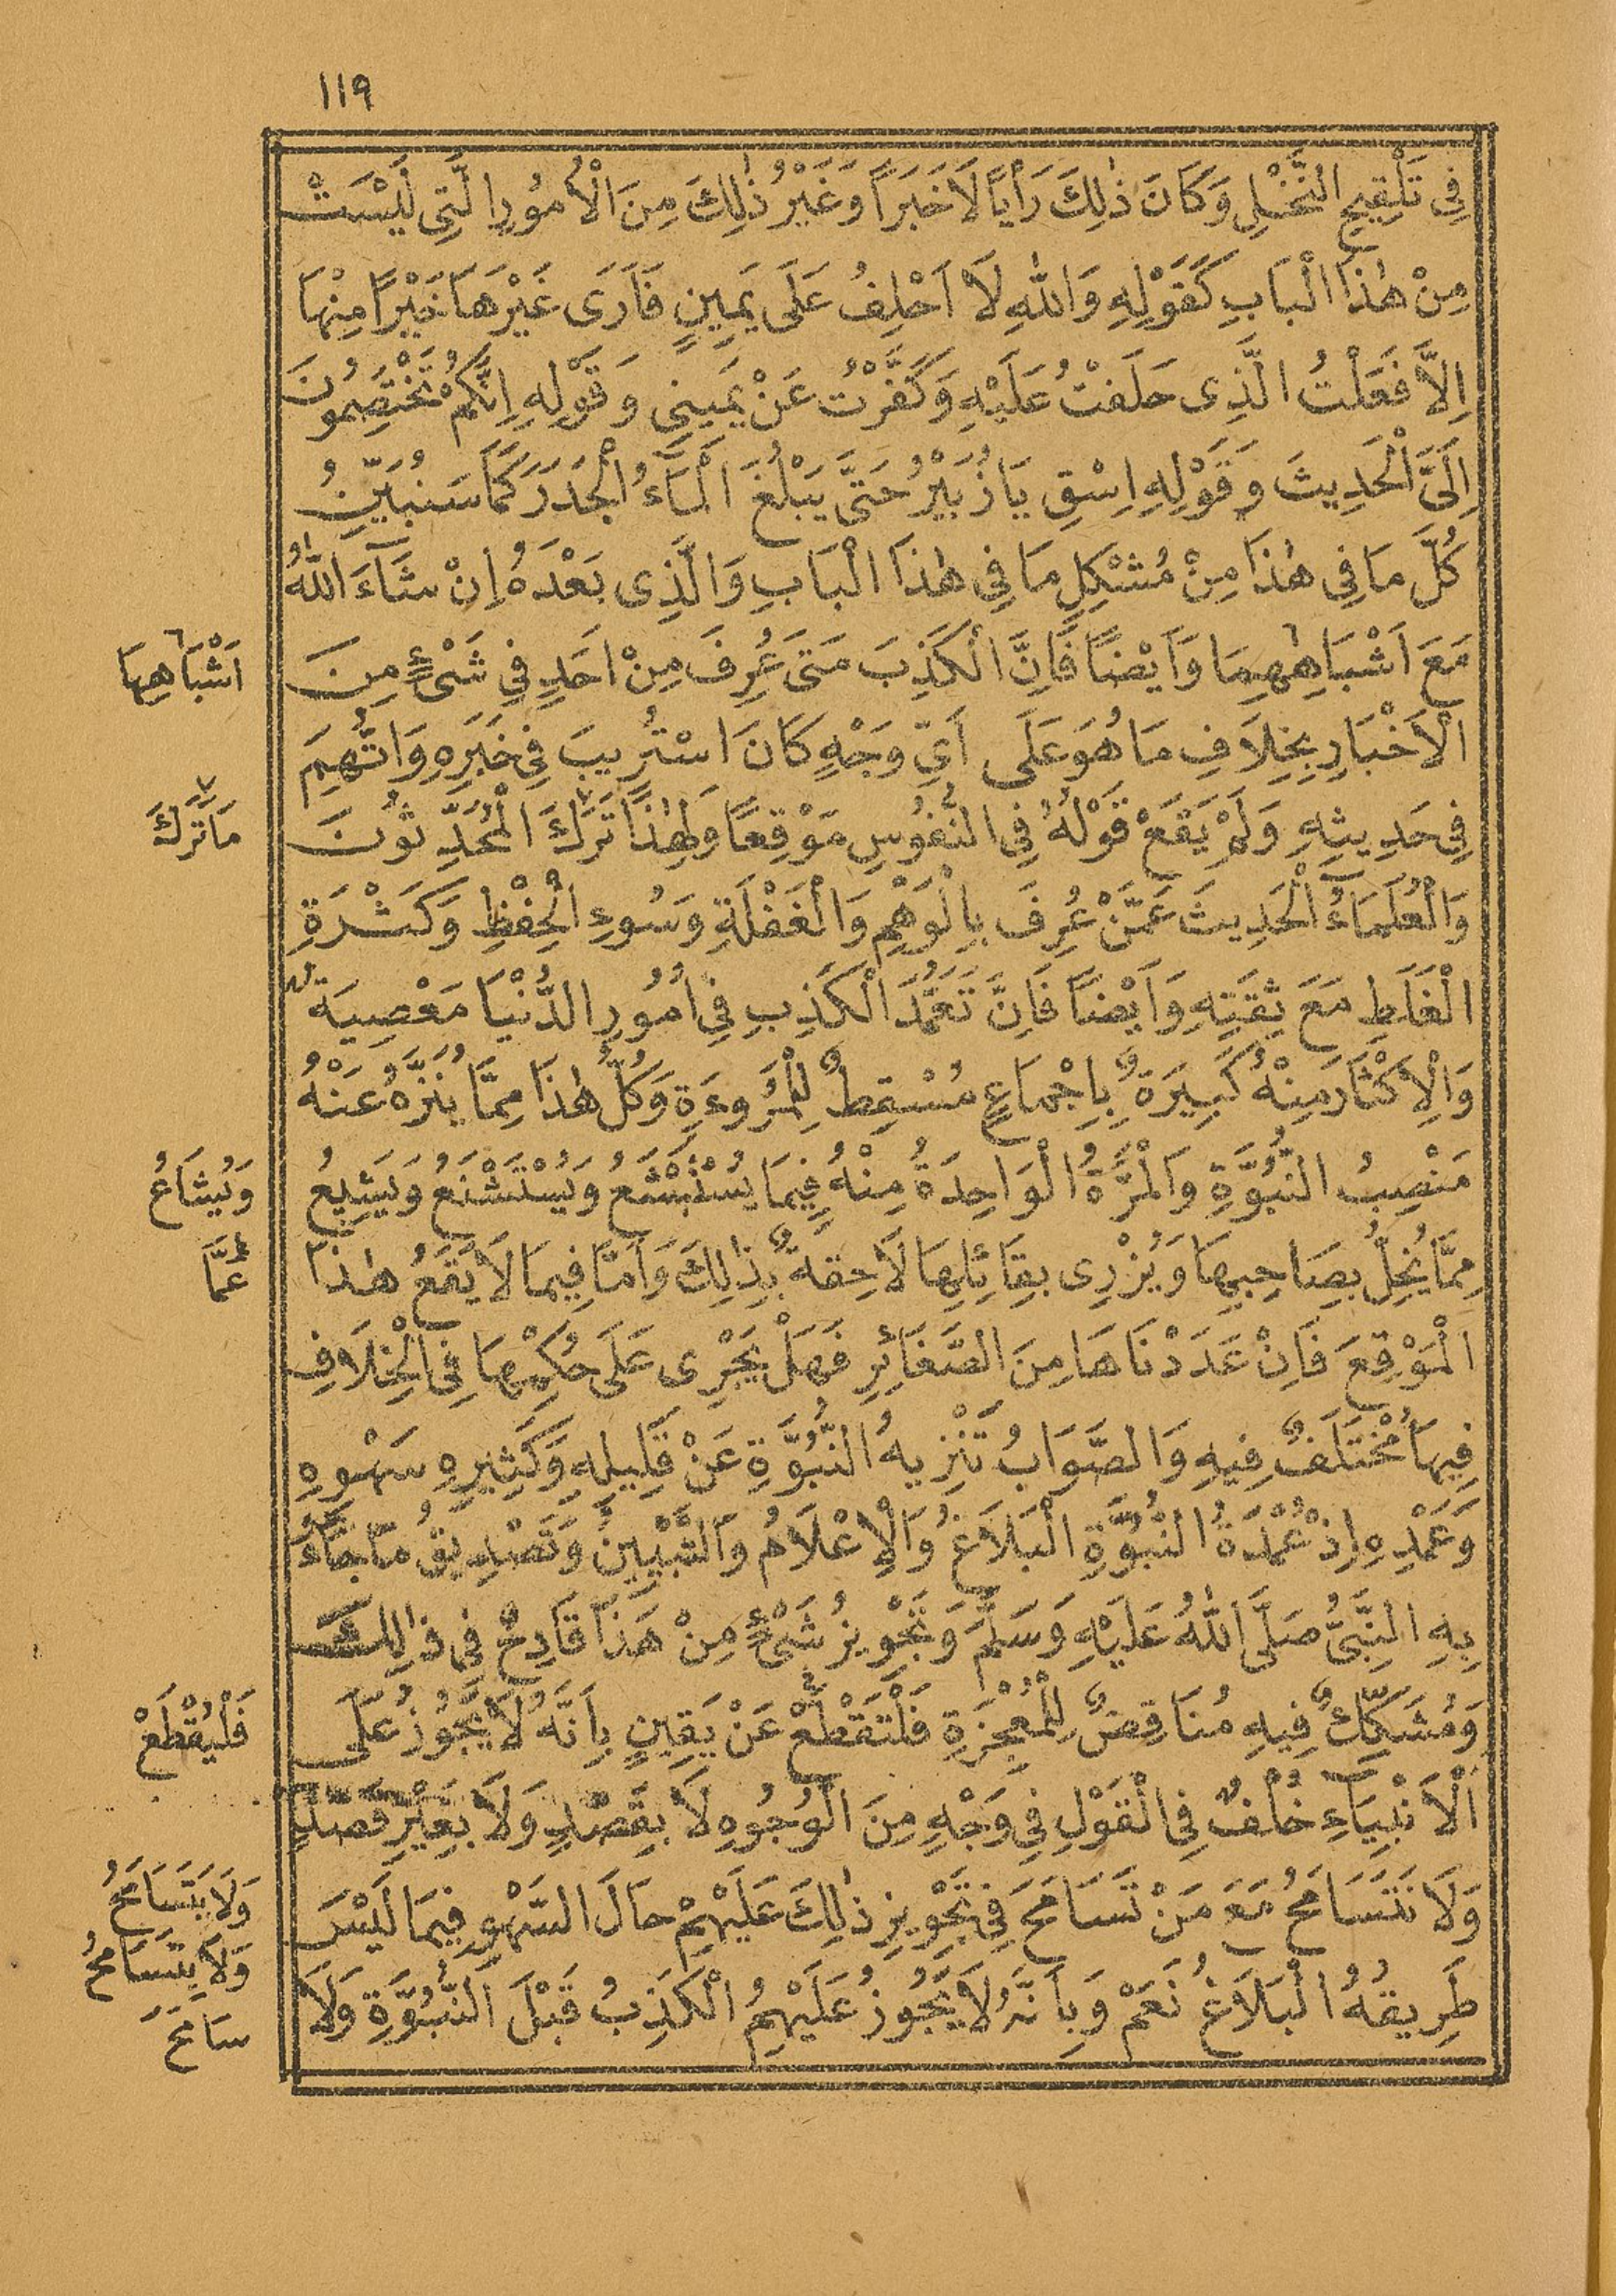 ١١٩
فِى تَلْقِيحِ النَّخْلِ وَكَانَ ذٰلِكَ رَأْيًا لَاخَبَرًا وَغَيْرُ ذٰلِكَ مِنَ الْاُمُورِ الَّتِى لَيْسَتْ
مِنْ هٰذَا الْبَابِ كَقَوْلِهِ وَاللّٰهِ لَا اَحْلِفُ عَلَى يَمِينٍ فَاَرَى غَيْرَهَا خَيْرًا مِنْهَا
اِلَّا فَعَلْتُ الَّذِى حَلَفْتُ عَلَيْهِ وَكَفَّرْتُ عَنْ يَمِينِى وَقَوْلِهِ اِنَّكُمْ تَخْتَصِمُونَ
اِلَىَّ الْحَدِيثَ وَقَوْلِهِ اِسْقِ يَا زُبَيْرُ حَتَّى يَبْلُغَ الْمَآءُ الْجَدَرَ كَمَا سَنُبَيِّنُ
كُلَّ مَا فِى هٰذَا مِنْ مُشْكِلِ مَا فِى هٰذَا الْبَابِ وَالَّذِى بَعْدَهُ اِنْ شَآءَ اللّٰهُ
مَعَ اَشْبَاهِهِمَا وَاَيْضًا فَاِنَّ الْكَذِبَ مَتَى عُرِفَ مِنْ اَحَدٍ فِى شَىْءٍ مِنَ
اَشْبَاهِهَا
الْاَخْبَارِ بِخِلَافِ مَا هُوَ عَلَى اَىِّ وَجْهٍ كَانَ اسْتُرِيبَ فِى خَبَرِهِ وَاتُّهِمَ
فِى حَدِيثِهِ وَلَمْ يَقَعْ قَوْلُهُ فِى النُّفُوسِ مَوْقِعًا وَلِهٰذَا تَرَكَ الْمُحَدِّثُونَ
مَا تَرَكَ
وَالْعُلَمَآءُ الْحَدِيثَ عَمَّنْ عُرِفَ بِالْوَهْمِ وَالْغَفْلَةِ وَسُوءِ الْحِفْظِ وَكَثْرَةِ
الْغَلَطِ مَعَ ثِقَتِهِ وَاَيْضًا فَاِنَّ تَعَمُّدَ الْكَذِبِ فِى اُمُورِ الدُّنْيَا مَعْصِيَةٌ
وَالْاِكْثَارَ مِنْهُ كَبِيرَةٌ بِاِجْمَاعٍ مُسْقِطٌ لِلْمُرُوءَةِ وَكُلُّ هٰذَا مِمَّا يُنَزَّهُ عَنْهُ
مَنْصِبُ النُّبُوَّةِ وَالْمَرَّةُ الْوَاحِدَةُ مِنْهُ فِيمَا يُسْتَبْشَعُ وَيُسْتَشْنَعُ وَيَشِيعُ
وَيُشَاعُ
مِمَّا يُخِلُّ بِصَاحِبِهَا وَيُزْرِى بِقَائِلِهَا لَاحِقَةٌ بِذٰلِكَ وَاَمَّا فِيمَا لَا يَقَعُ هٰذَا
عَمَّا
الْمَوْقِعَ فَاِنْ عَدَدْنَاهَا مِنَ الصَّغَائِرِ فَهَلْ يَجْرِى عَلَى حُكْمِهَا فِى الْخِلَافِ
فِيهَا مُخْتَلَفٌ فِيهِ وَالصَّوَابُ تَنْزِيهُ النُّبُوَّةِ عَنْ قَلِيلِهِ وَكَثِيرِهِ سَهْوِهِ
وَعَمْدِهِ اِذْ عُمْدَةُ النُّبُوَّةِ الْبَلَاغُ وَالْاِعْلَامُ وَالتَّبْيِينُ وَتَصْدِيقُ مَا جَآءَ
بِهِ النَّبِىُّ صَلَّى اللّٰهُ عَلَيْهِ وَسَلَّمَ وَتَجْوِيزُ شَىْءٍ مِنْ هَذَا قَادِحٌ فِى ذٰلِكَ
وَمُشَكِّكٌ فِيهِ مُنَاقِضٌ لِلْمُعْجِزَةِ فَلْنَقْطَعْ عَنْ يَقِينٍ بِاَنَّهُ لَا يَجُوزُ عَلَى
فَلْيُقْطَعْ
الْاَنْبِيَآءِ خُلْفٌ فِى الْقَوْلِ فِى وَجْهٍ مِنَ الْوُجُوهِ لَا بِقَصْدٍ وَلَا بِغَيْرِ قَصْدٍ
وَلَا نَتَسَامَحُ مَعَ مَنْ تَسَامَحَ فِى تَجْوِيزِ ذٰلِكَ عَلَيْهِمْ حَالَ السَّهْوِ فِيمَا لَيْسَ
وَلَا يَتَسَامَحُ
وَلَا يَتَسَامَحُ
طَرِيقُهُ الْبَلَاغُ نَعَمْ وَبِاَنَّهُ لَا يَجُوزُ عَلَيْهِمُ الْكَذِبُ قَبْلَ النُّبُوَّةِ وَلَا
سَامَحَ